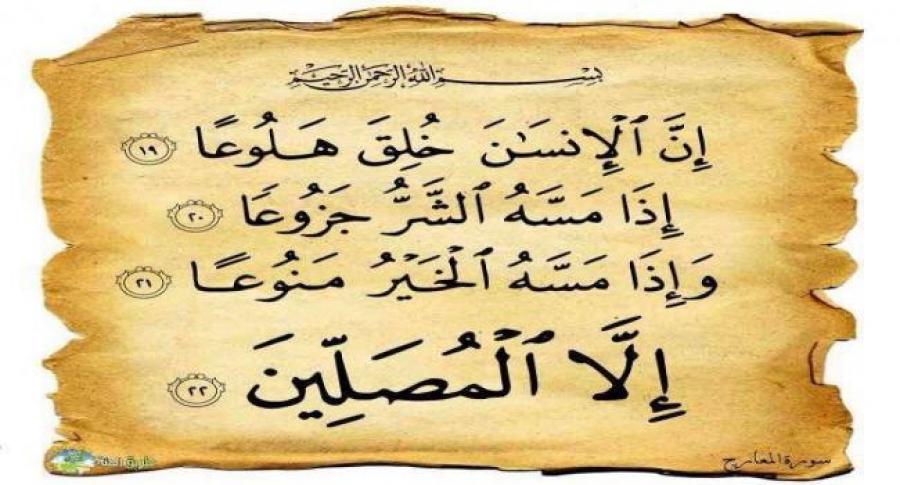 بِسْمِ اللَّهِ الرَّحْمَٰنِ الرَّحِيمِ
إِنَّ ٱلْإِنسَـٰنَ خُلِقَ هَـلُوعًا ١٩
إِذَا مَسَّهُ ٱلشَّرُّ جَزُوعًا ٢٠
وَإِذَا مَسَّهُ ٱلْخَيْرُ مَنُوعًـا ٢١
إِلَّا ٱلْمُصَلِّينَ ٢٢
سورة المعارج
طريق الجنة